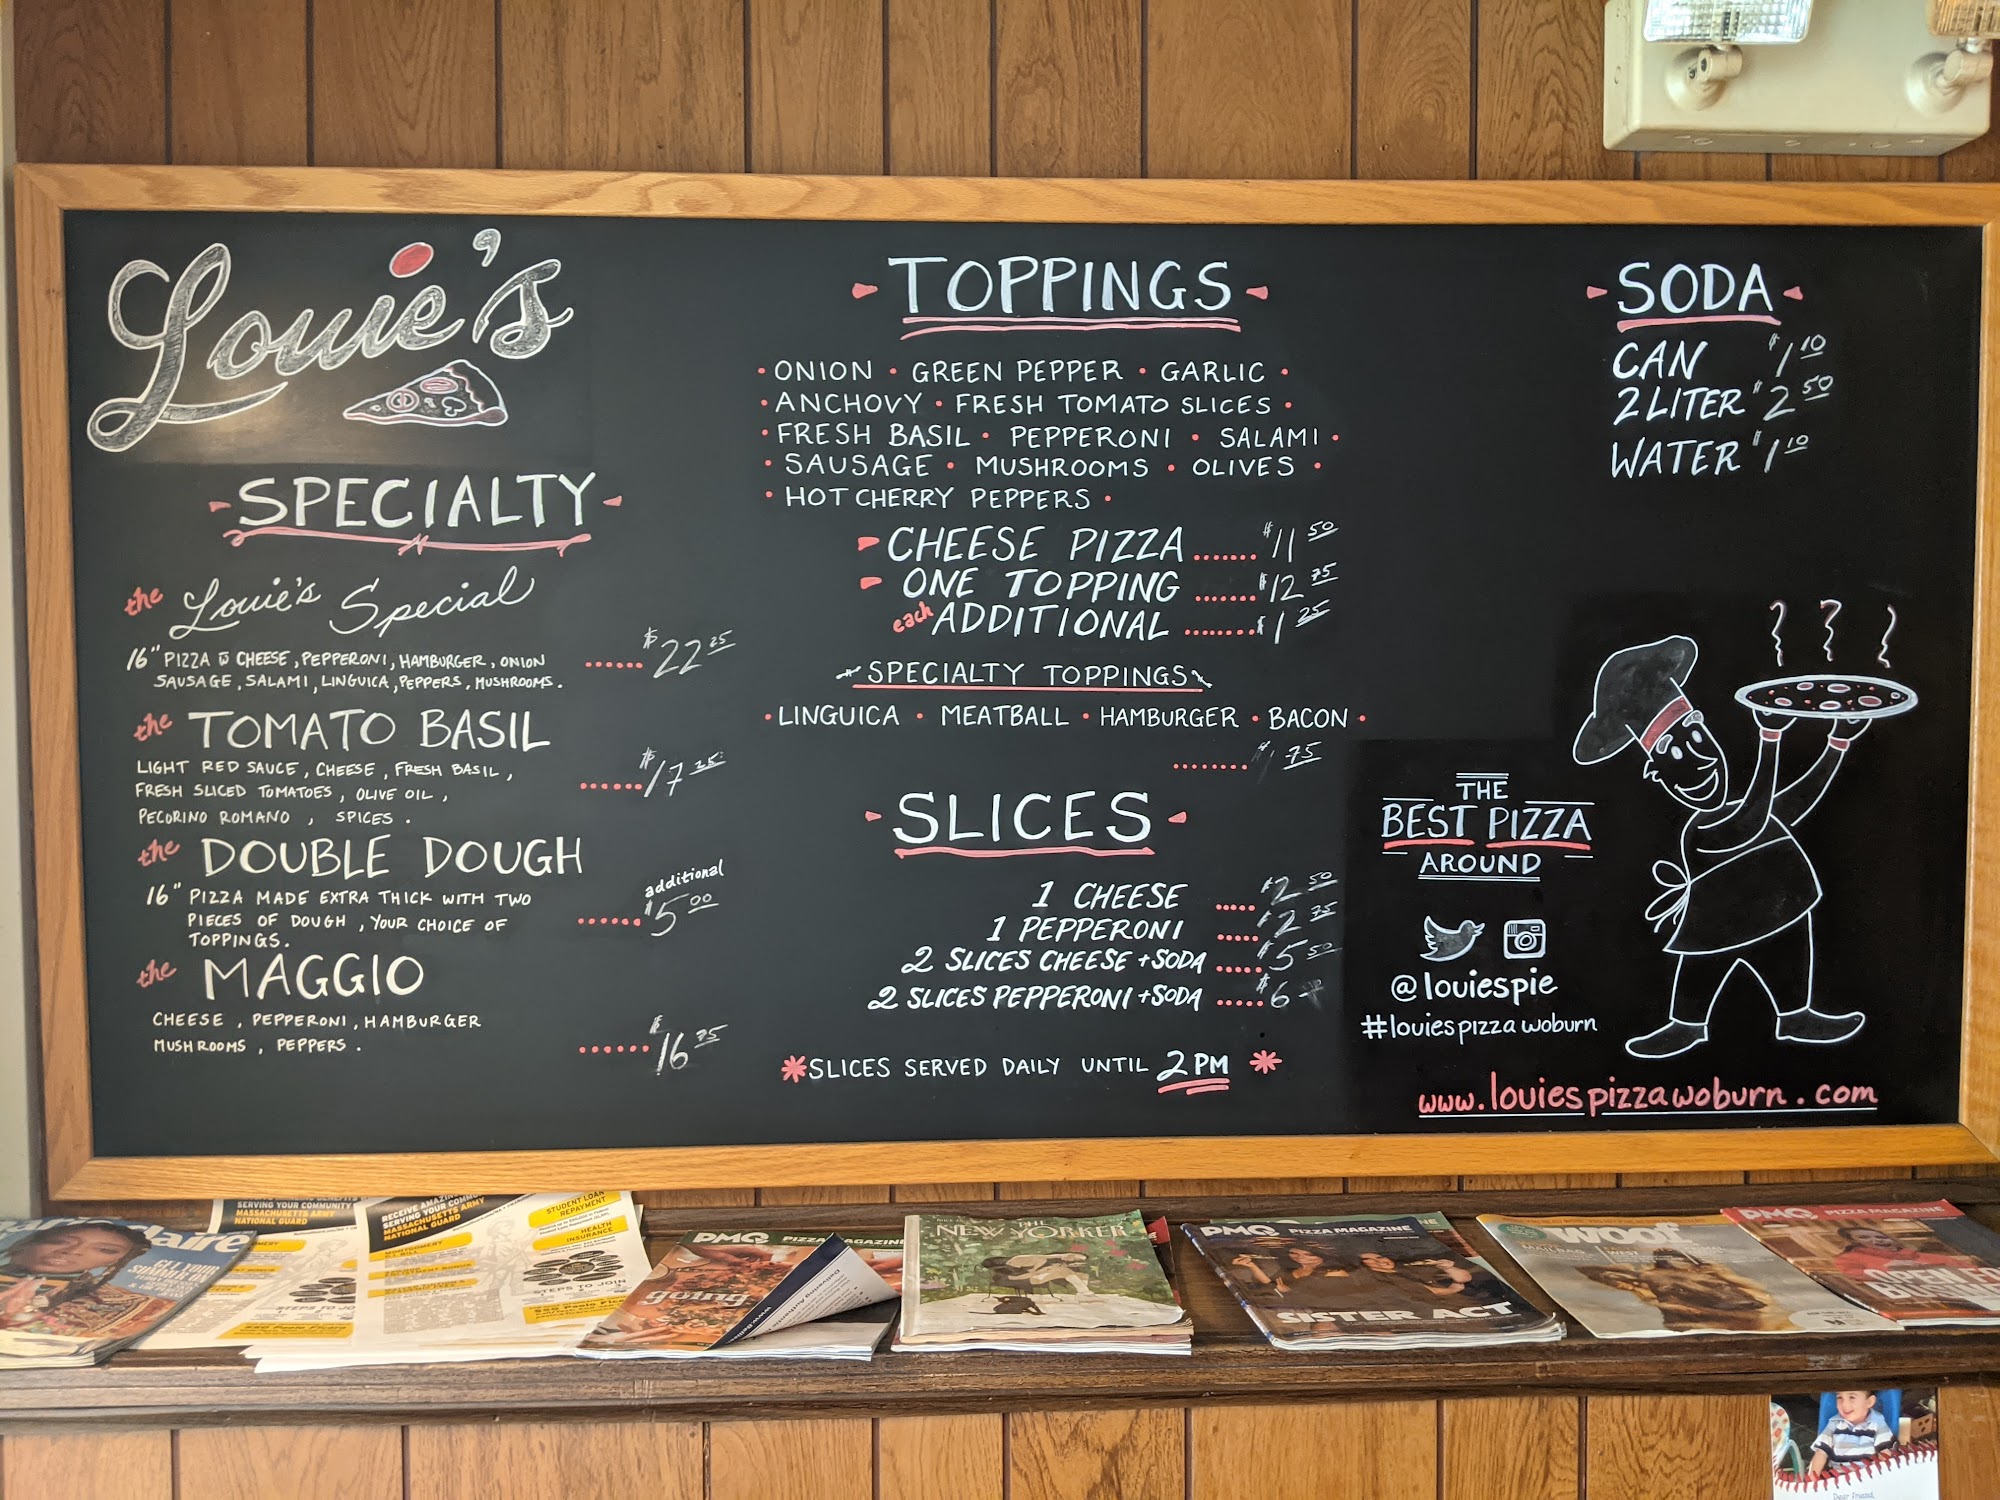 Louie's
SPECIALTY
the Louie's Special
16" PIZZA W CHEESE, PEPPERONI, HAMBURGER, ONION
SAUSAGE, SALAMI, LINGUICA, PEPPERS, MUSHROOMS. ...... $22 25
the TOMATO BASIL
LIGHT RED SAUCE, CHEESE, FRESH BASIL,
FRESH SLICED TOMATOES, OLIVE OIL, ...... $17 25
PECORINO ROMANO, SPICES.
the DOUBLE DOUGH
16" PIZZA MADE EXTRA THICK WITH TWO
PIECES OF DOUGH, YOUR CHOICE OF
TOPPINGS. ...... additional $5 00
the MAGGIO
CHEESE, PEPPERONI, HAMBURGER
MUSHROOMS, PEPPERS. ...... $16 75
TOPPINGS
• ONION • GREEN PEPPER • GARLIC •
• ANCHOVY • FRESH TOMATO SLICES •
• FRESH BASIL • PEPPERONI • SALAMI •
• SAUSAGE • MUSHROOMS • OLIVES •
• HOT CHERRY PEPPERS •
CHEESE PIZZA ....... $11 50
ONE TOPPING ....... $12 75
each ADDITIONAL ....... $1 25
SPECIALTY TOPPINGS
• LINGUICA • MEATBALL • HAMBURGER • BACON •
........ $1 75
SLICES
1 CHEESE ..... $2 50
1 PEPPERONI ..... $2 75
2 SLICES CHEESE + SODA ..... $5 50
2 SLICES PEPPERONI + SODA ..... $6
*SLICES SERVED DAILY UNTIL 2 PM *
SODA
CAN $1 10
2 LITER $2 50
WATER $1 10
THE
BEST PIZZA
AROUND
@louiespie
#louiespizzawoburn
www.louiespizzawoburn.com
SERVING YOUR COMMUNITY
MASSACHUSETTS ARMY
NATIONAL GUARD
RECEIVE
SERVING YOUR
MASSACHUSETTS ARMY
NATIONAL GUARD
MONTGOMERY
G.I. BILL
STUDENT LOAN
REPAYMENT
HEALTH
INSURANCE
STEPS TO JOIN
PMQ PIZZA MAGAZINE
going
THE
NEW YORKER
PMQ PIZZA MAGAZINE
SISTER ACT
Woof
PMQ PIZZA MAGAZINE